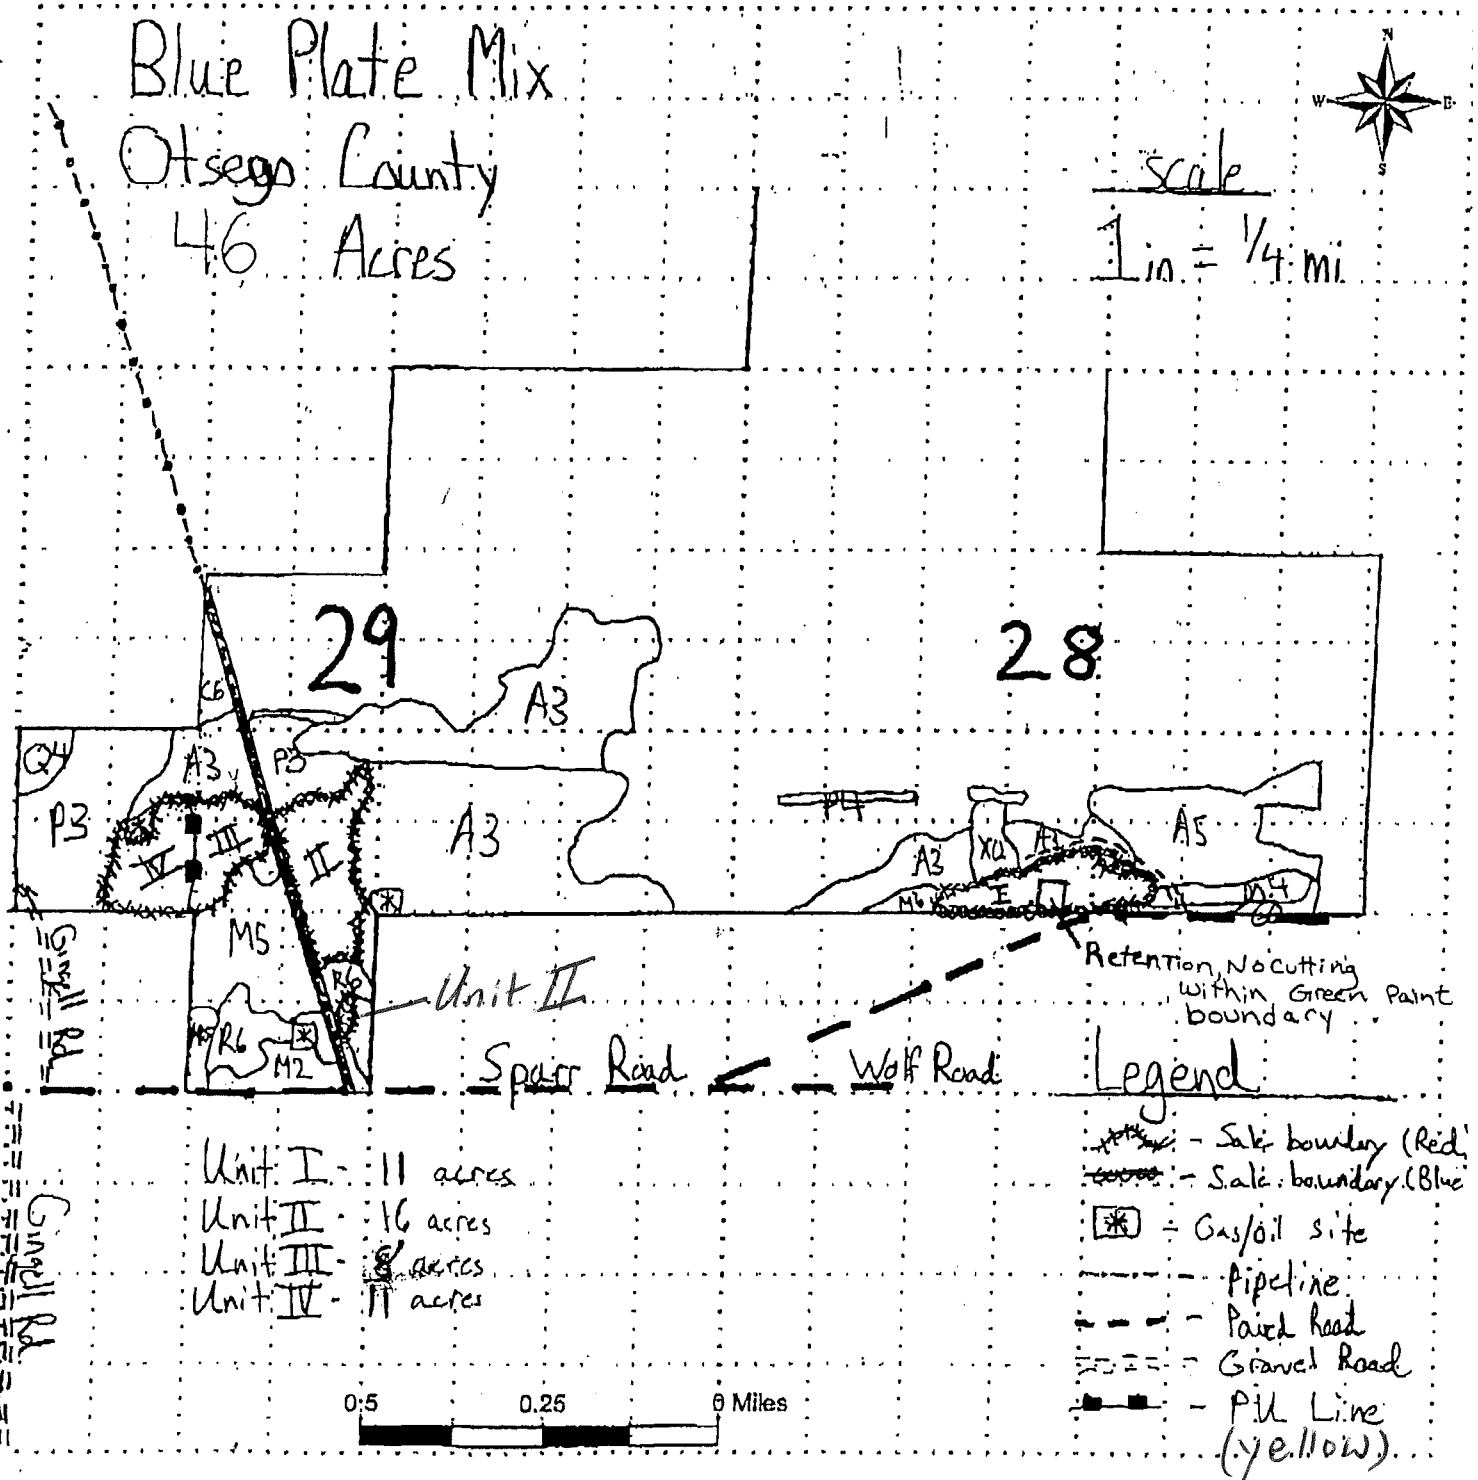 Blue Plate Mix
Otsego County
46 Acres
N
W E
S
scale
1 in = 1/4 mi
29
28
C6
Q4
A3
P3
A3
P3
A3
III
IV
II
M5
R6
Unit II
R6
M2
P4
A3
XU
A1
A5
M6
I
M4
Retention, No cutting
within Green Paint
boundary
Gingell Rd.
Sparr Road
Wolf Road
Legend
Unit I - 11 acres
Unit II - 16 acres
Unit III - 8 acres
Unit IV - 11 acres
Gingell Rd.
- Sale boundary (Red)
- Sale boundary (Blue
- Gas/oil site
- Pipeline
- Paved Road
- Gravel Road
- PU Line
(yellow)
0.5 0.25 0 Miles